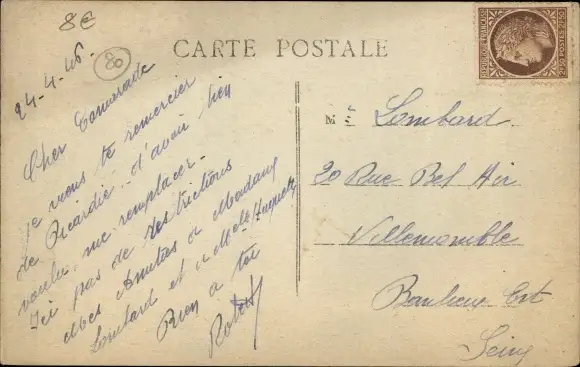 8€
80
CARTE POSTALE
24-4-46.
Cher Camarade
je viens te remercier
de Picardie d'avoir bien
voulu me remplacer-
Ici pas de restrictions
Mes Amitiés à Madame
Lombard et à Melle Huguette
Bien à toi
Robert
REPUBLIQUE FRANÇAISE
POSTES
Mr Lombard.
20 Rue Bel Air
Villemomble
Banlieue Est
Seine